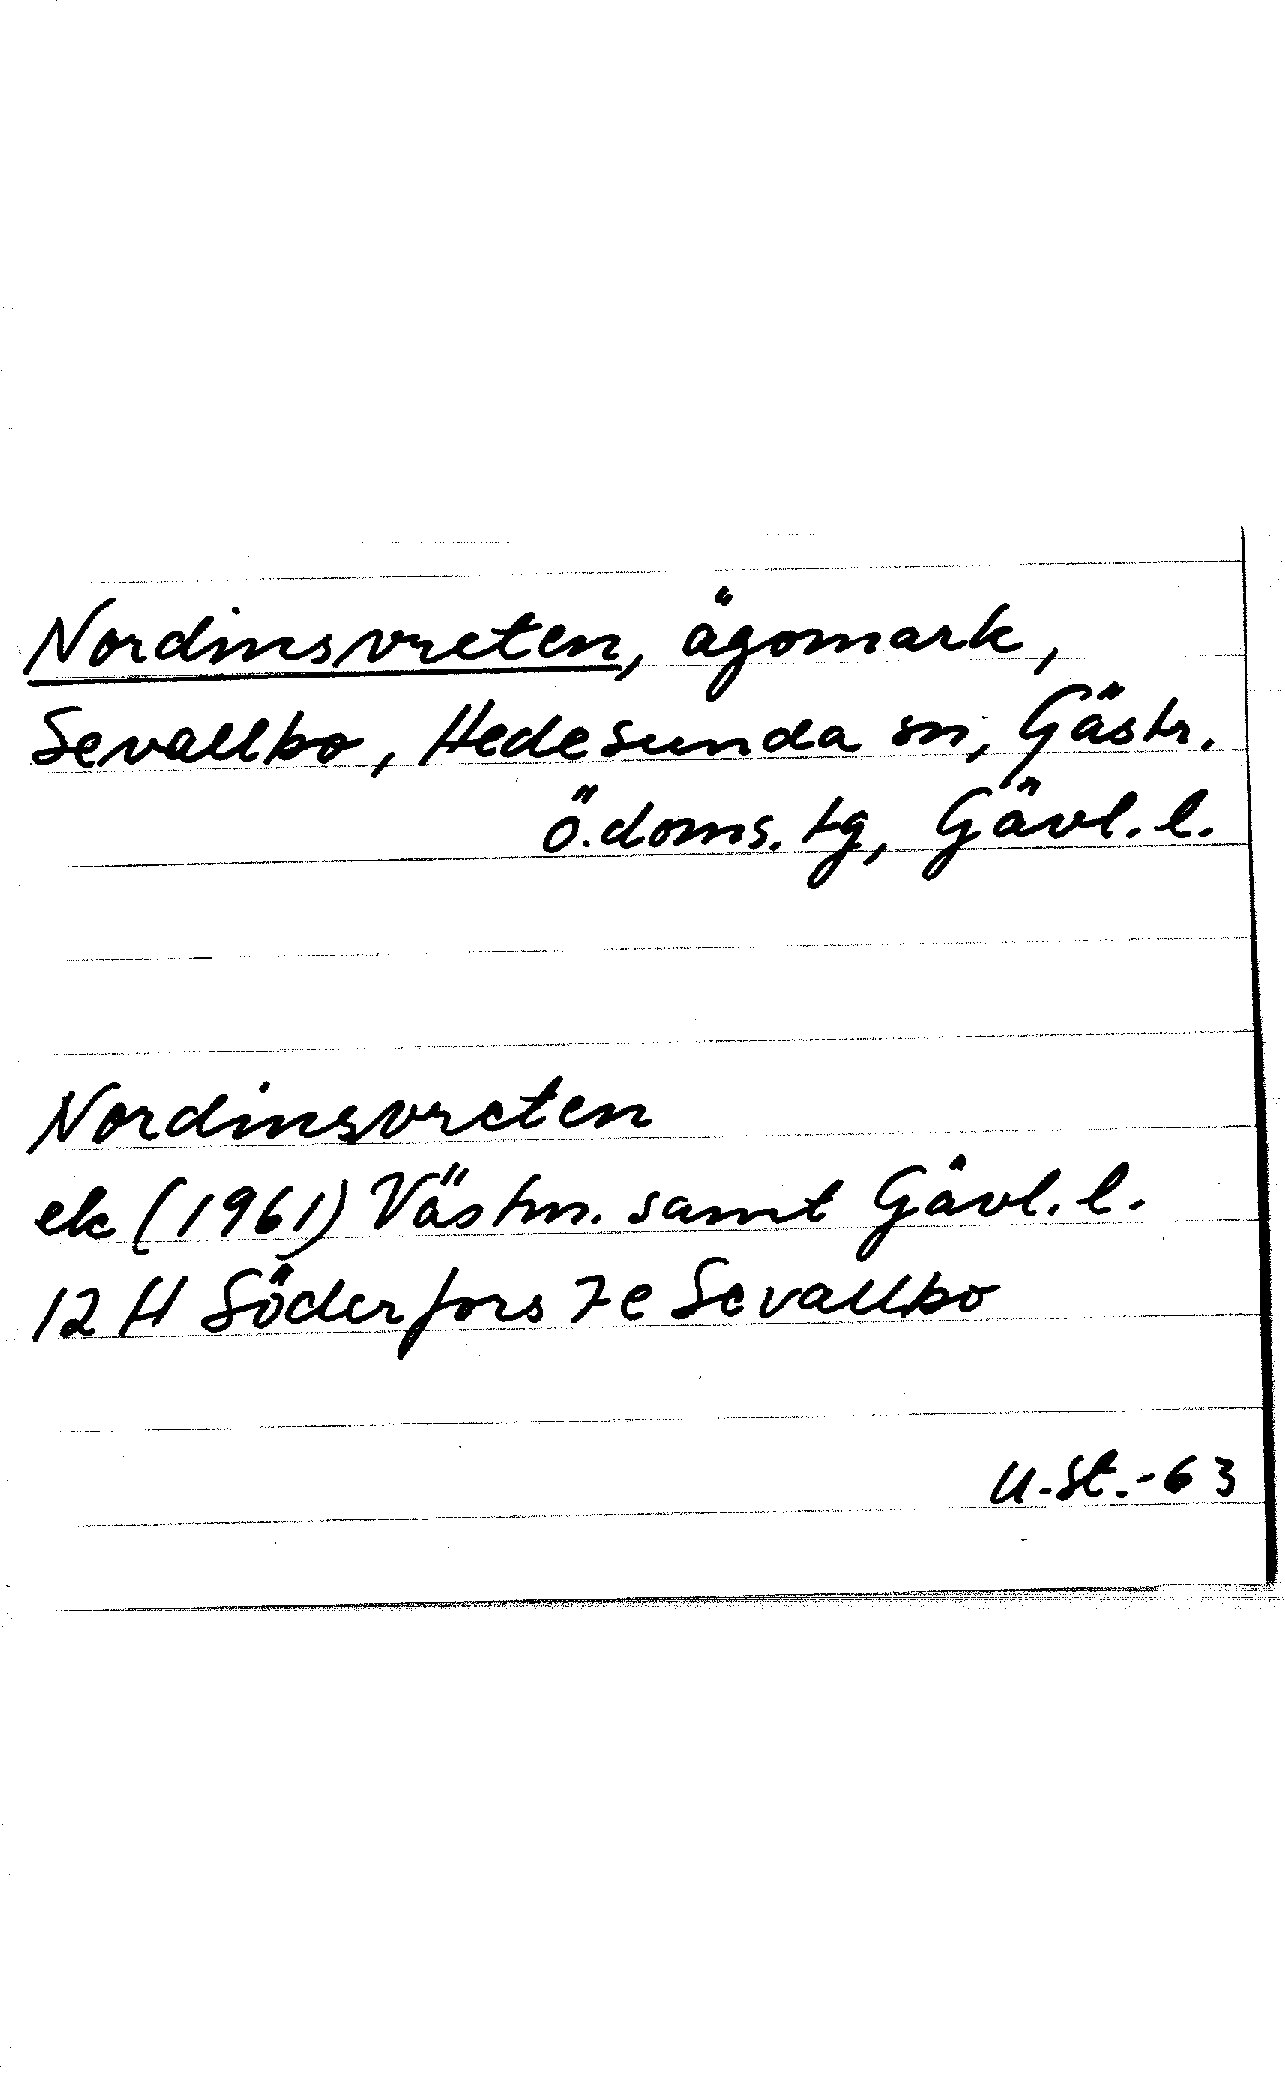 Nordinsvreten, ägomark,
Sevallbo, Hedesunda sn, Gästr.
ö. doms. tg, Gävl. l.
Nordinsvreten
ek (1961) Västm. samt Gävl. l.
12 H Söderfors 7 e Sevallbo
U. St. -63